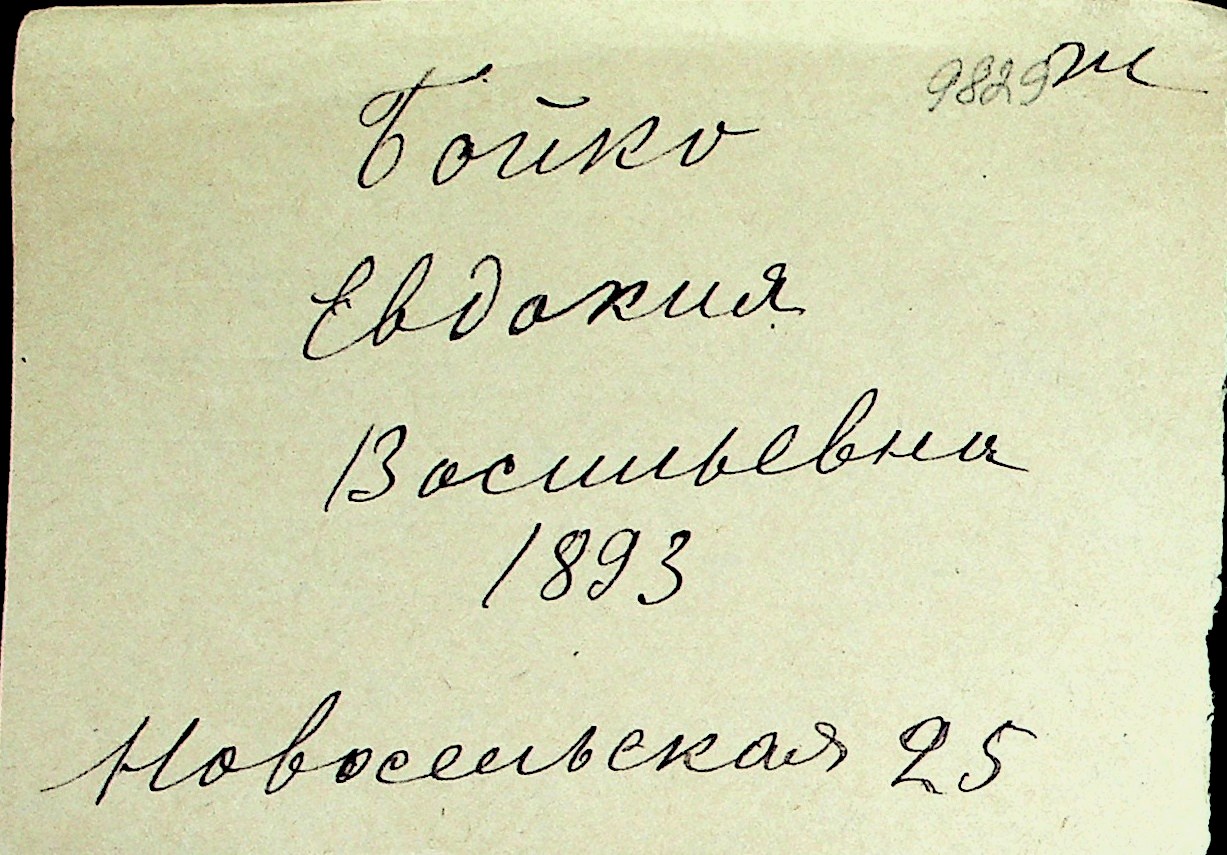 9829 ж
Бойко
Евдокия
Васильевна
1893
Новосельская 25